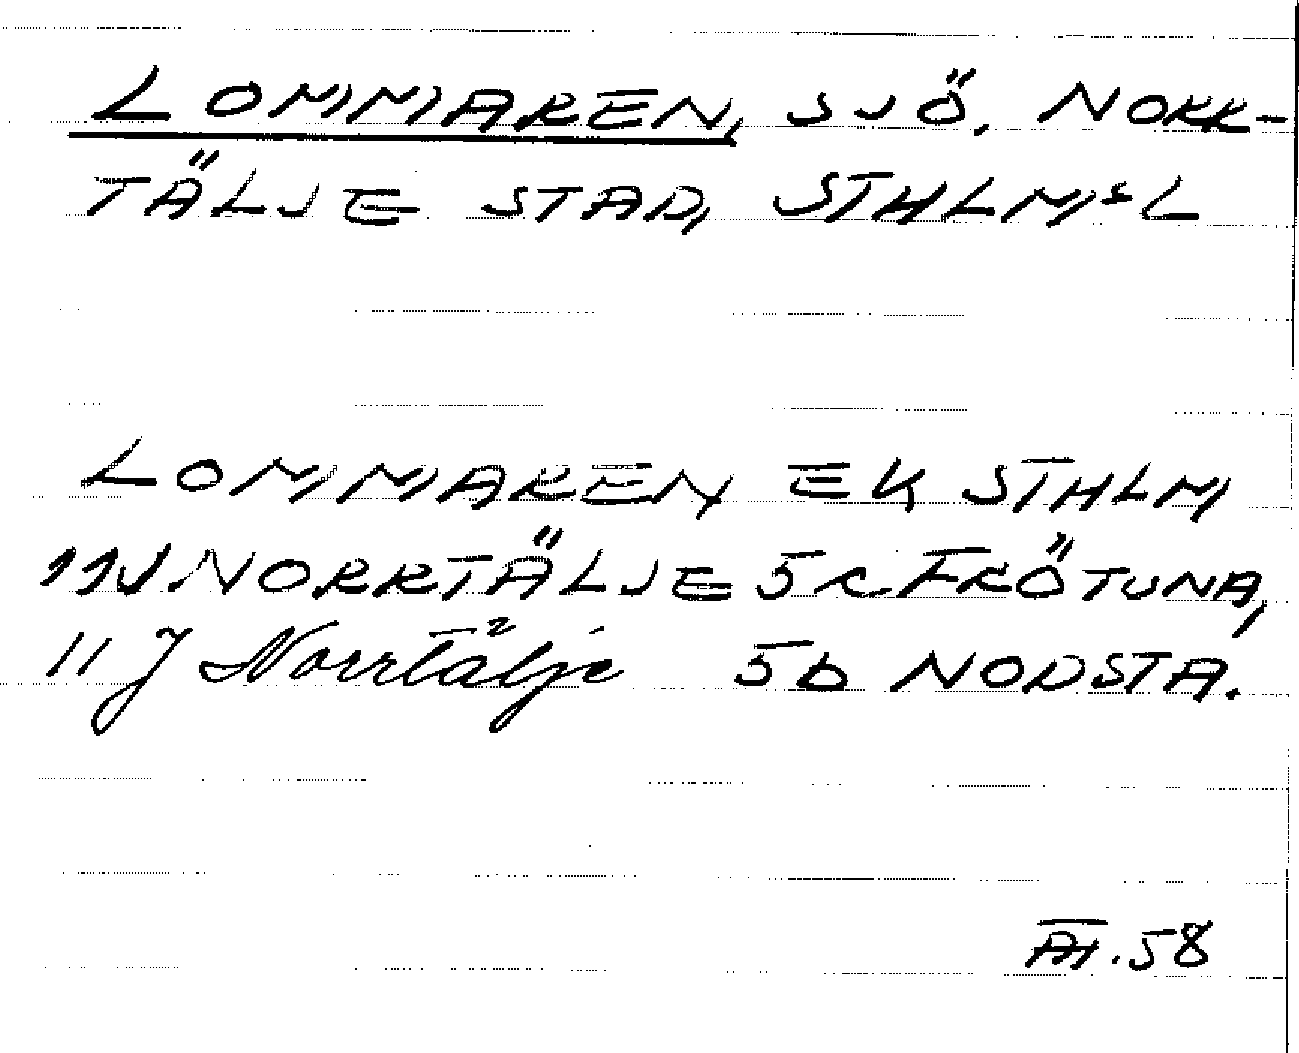 LOMMAREN, SJÖ, NORR-
TÄLJE STAD, STHLMS L
LOMMAREN EK STHLM
11J NORRTÄLJE 5c FRÖTUNA,
11 J Norrtälje 5b NODSTA.
.58